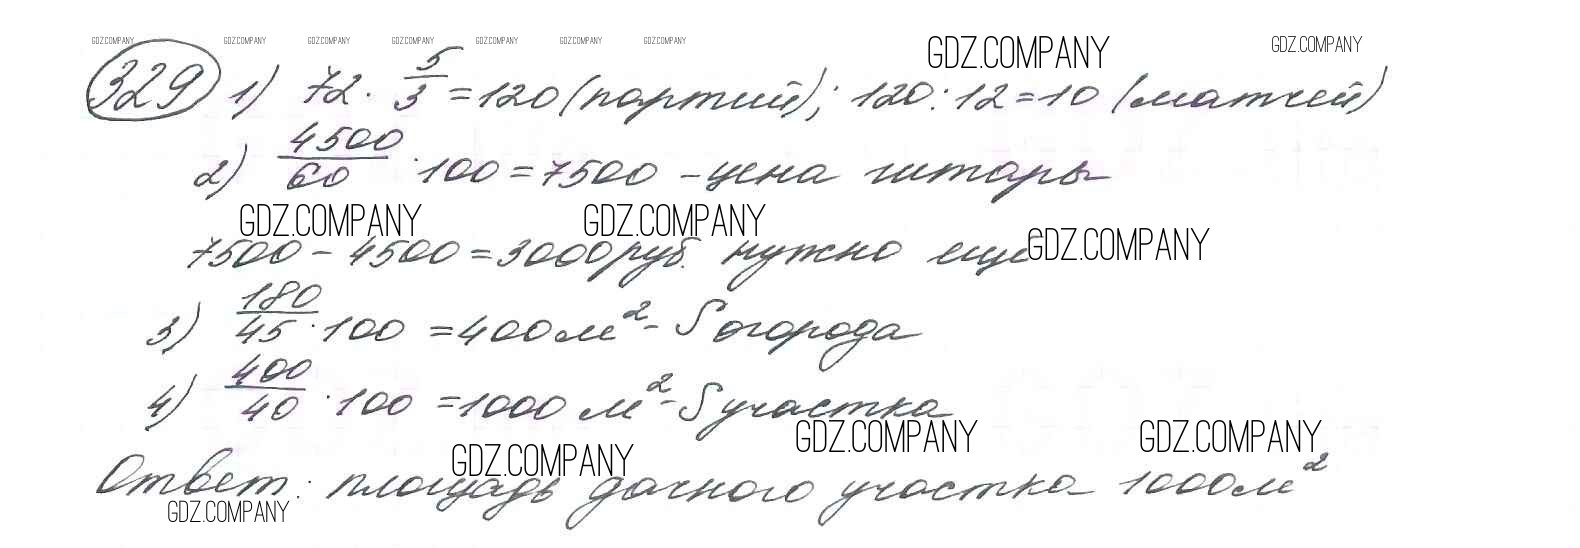 GDZ.COMPANY GDZ.COMPANY GDZ.COMPANY GDZ.COMPANY GDZ.COMPANY GDZ.COMPANY GDZ.COMPANY GDZ.COMPANY GDZ.COMPANY
329 1) 72 · 5/3 = 120 (партий); 120 : 12 = 10 (матчей)
2) 4500/60 · 100 = 7500 – цена гитары
GDZ.COMPANY GDZ.COMPANY GDZ.COMPANY
7500 – 4500 = 3000 руб. нужно еще
3) 180/45 · 100 = 400 м² – S огорода
4) 400/40 · 100 = 1000 м² – S участка
GDZ.COMPANY GDZ.COMPANY GDZ.COMPANY
Ответ: площадь дачного участка 1000 м²
GDZ.COMPANY